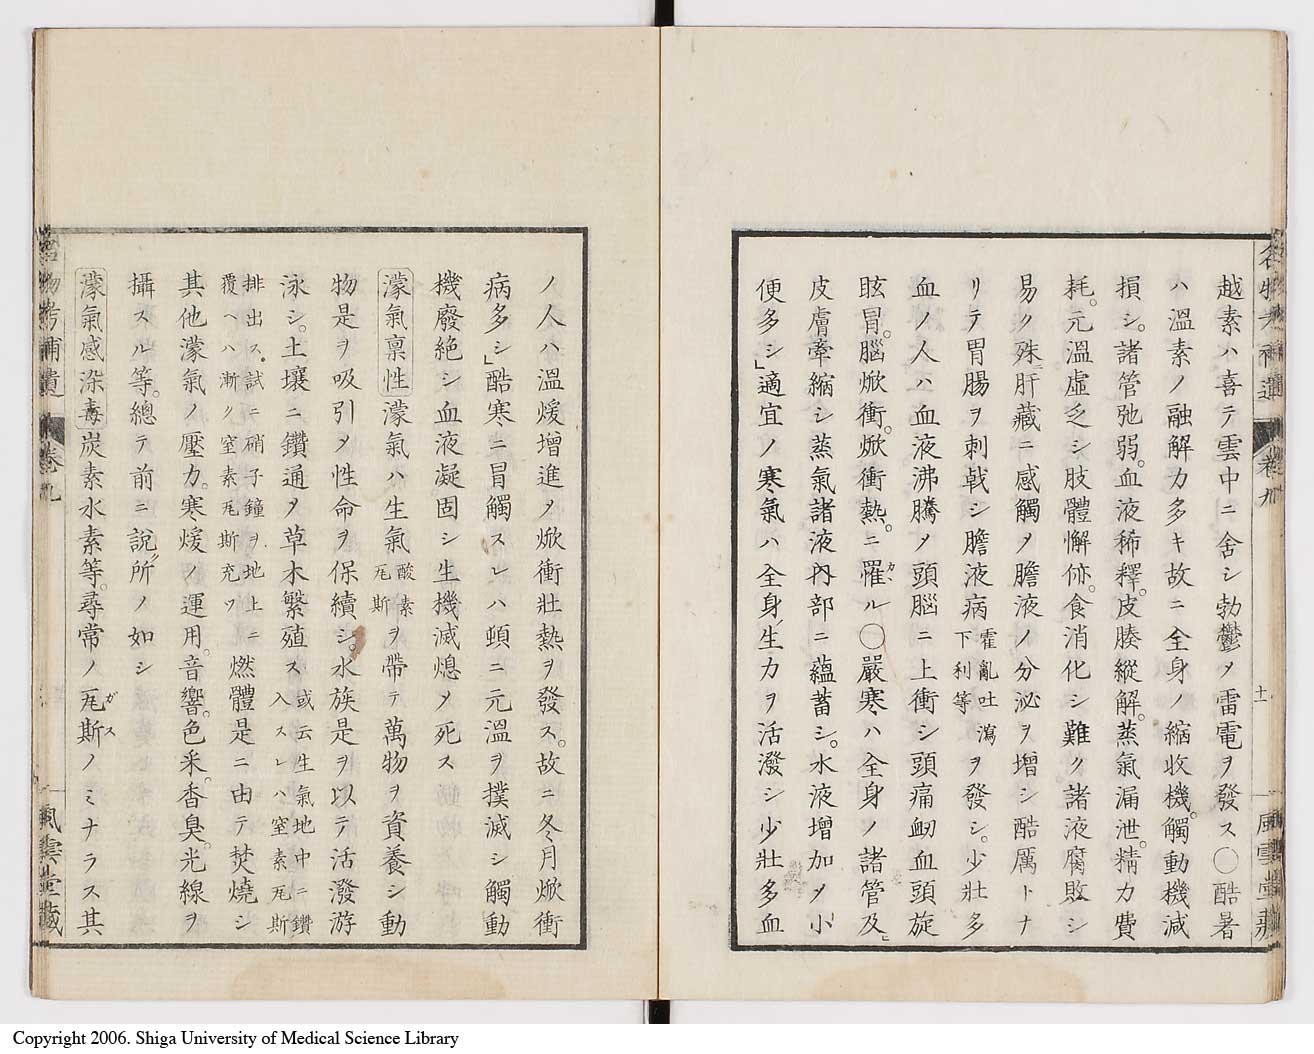 越素ハ喜テ雲中ニ舍シ勃鬱メ雷電ヲ發ス○酷暑
ハ溫素ノ融解力多キ故ニ全身ノ縮收機。觸動機減
損シ。諸管弛弱。血液稀釋。皮腠縱解。蒸氣漏泄。精力費
耗。元溫虛乏シ肢體懈㑊。食消化シ難ク諸液腐敗シ
易ク殊ニ肝藏ニ感觸メ膽液ノ分泌ヲ增シ酷厲トナ
リテ胃腸ヲ刺戟シ膽液病霍亂吐瀉下利等ヲ發シ。少壯多
血ノ人ハ血液沸騰メ頭腦ニ上衝シ頭痛衄血頭旋
眩冒。腦焮衝。焮衝熱。ニ罹ル○嚴寒ハ全身ノ諸管及
皮膚牽縮シ蒸氣諸液內部ニ蘊蓄シ。水液增加メ小
便多シ」適宜ノ寒氣ハ全身生力ヲ活潑シ少壯多血
ノ人ハ溫煖增進メ焮衝壯熱ヲ發ス。故ニ冬月焮衝
病多シ」酷寒ニ冒觸スレハ頓ニ元溫ヲ撲滅シ觸動
機廢絕シ血液凝固シ生機滅熄メ死ス
濛氣稟性 濛氣ハ生氣酸素瓦斯ヲ帶テ萬物ヲ資養シ動
物是ヲ吸引メ性命ヲ保續シ。水族是ヲ以テ活潑游
泳シ。土壤ニ鑽通メ草木繁殖ス或云生氣地中ニ鑽入スレハ窒素瓦斯
排出ス。試ニ硝子鐘ヲ地上ニ覆ヘハ漸ク窒素瓦斯充ツ燃體是ニ由テ焚燒シ
其他濛氣ノ壓力。寒煖ノ運用。音響。色采。香臭。光線ヲ
攝スル等。總テ前ニ說所ノ如シ
濛氣感染毒 炭素水素等。尋常ノ瓦斯ノミナラス其
名物考補遺 卷九 十一 風雲堂藏
名物考補遺 卷九 風雲堂藏
Copyright 2006. Shiga University of Medical Science Library